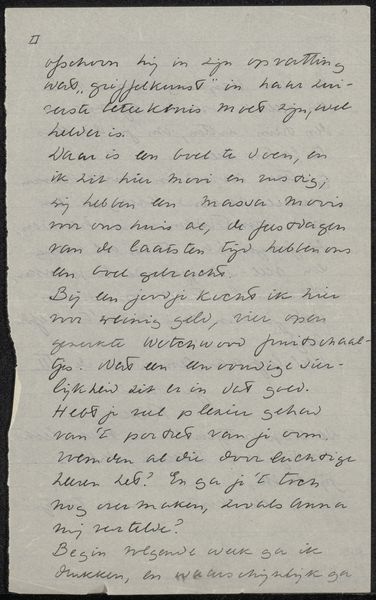 II
ofschoon hij in zijn opvatting
wat „griffelkunst" in haar zui-
verste beteekenis moet zijn, wel
helder is.
Daar is een boel te doen, en
ik zit hier mooi en rustig,
wij hebben een massa moois
voor ons huis al, de feestdagen
van de laatsten tijd hebben ons
een boel gebracht.
Bij een joodje kocht ik hier
voor weinig geld, vier open
gewerkte Wetchwood fruitschaal-
tjes. Wat een eenvoudige sier-
lijkheid zit er in dat goed.
Hebt je veel plezier gehad
van 't portret van je oom
al die doorluchtige
heeren het? En ga je 't toch
nog over maken, zooals Anna
mij vertelde?
Begin volgende week ga ik
drukken, en waarschijnlijk ga